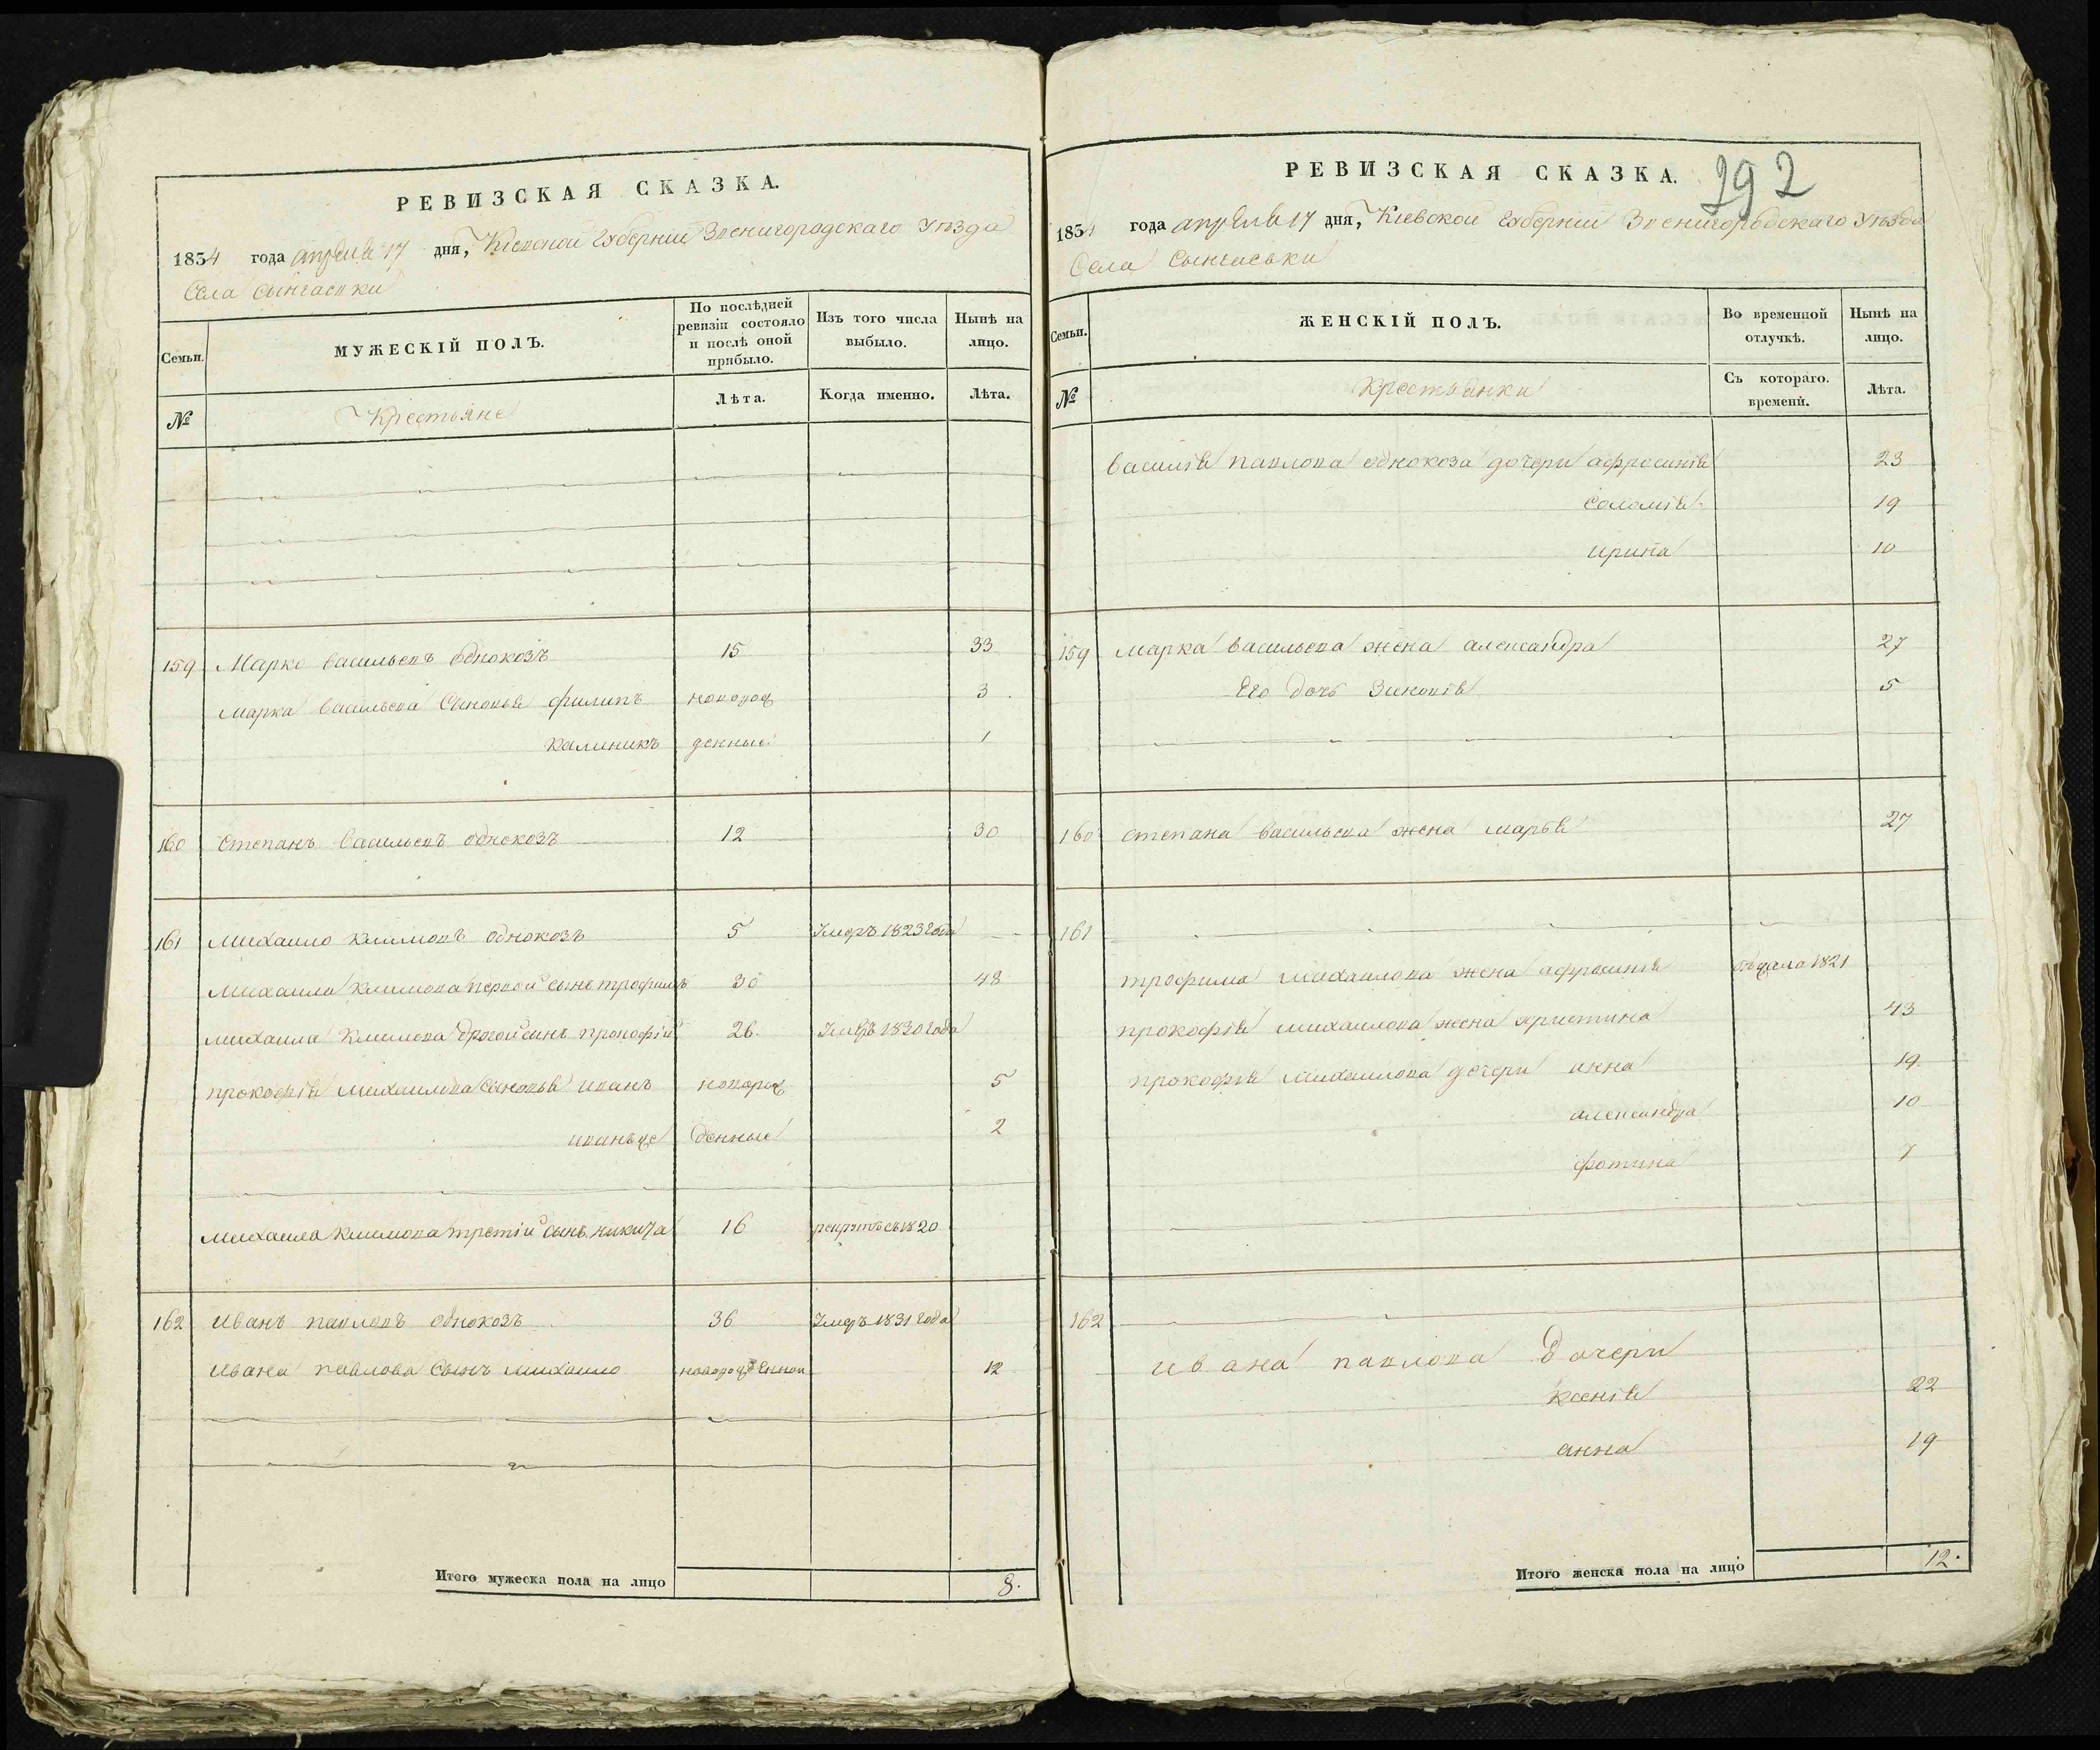 РЕВИЗСКАЯ СКАЗКА.
1834 года апреля 17 дня, Кіевской губерніи Звенигородскаго уѣзда
Села Сынгаевки
Семьи. МУЖЕСКІЙ ПОЛЪ. По послѣдней ревизіи состояло и послѣ оной прибыло. Изъ того числа выбыло. Нынѣ на лицо.
№ Крестьяне Лѣта. Когда именно. Лѣта.
159 Марко васильевъ Однокозъ 15 33
Марка васильева Сыновья филипъ новорож 3
Калиникъ денные 1
160 Степанъ васильевъ Однокозъ 12 30
161 Михаило климовъ Однокозъ 5 Умеръ 1823 года
Михаила климова первой сынъ трофимъ 30 48
Михаила климова другой сынъ прокофій 26. Умеръ 1830 года
прокофія Михаилова Сыновья иванъ новорож 5
иванъ же денные 2
Михаила климова третій сынъ никита 16 1820
162 Иванъ павловъ Однокозъ 36 Умеръ 1831 года
Ивана павлова Сынъ михаило новорожденной 12
Итого мужеска пола на лицо 8.
292
РЕВИЗСКАЯ СКАЗКА.
1834 года апреля 17 дня, Кіевской губерніи Звенигородскаго уѣзда
Села Сынгаевки
Семьи. ЖЕНСКІЙ ПОЛЪ. Во временной отлучкѣ. Нынѣ на лицо.
№ Крестьянки Съ котораго. времени. Лѣта.
василія павлова однокоза дочери афросинія 23
Соломія 19
ирина 10
159 Марка васильева жена александра 27
Его дочь Зиновія 5
160 Степана васильева жена марья 27
161
трофима михаилова жена афросинія бѣжала 1821
прокофія михаилова жена христина 43
прокофія михаилова дочери анна 19
александра 10
фотина 7
162
ивана павлова Дочери
ксенія 22
анна 19
Итого женска пола на лицо 12.